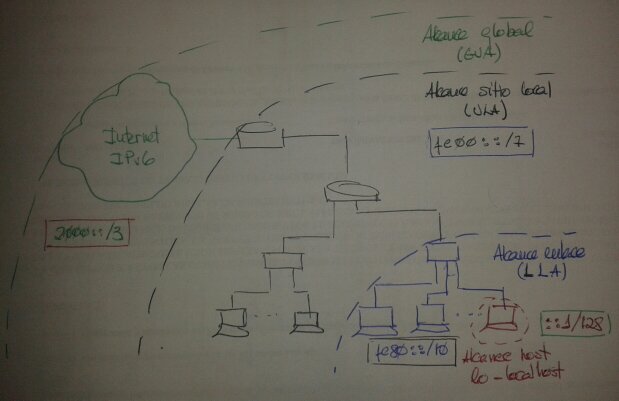 Alcance global
(GUA)
Alcance sitio local
(ULA)
fc00::/7
Internet
IPv6
2000::/3
Alcance enlace
(LLA)
fe80::/10
::1/128
Alcance host
lo-localhost